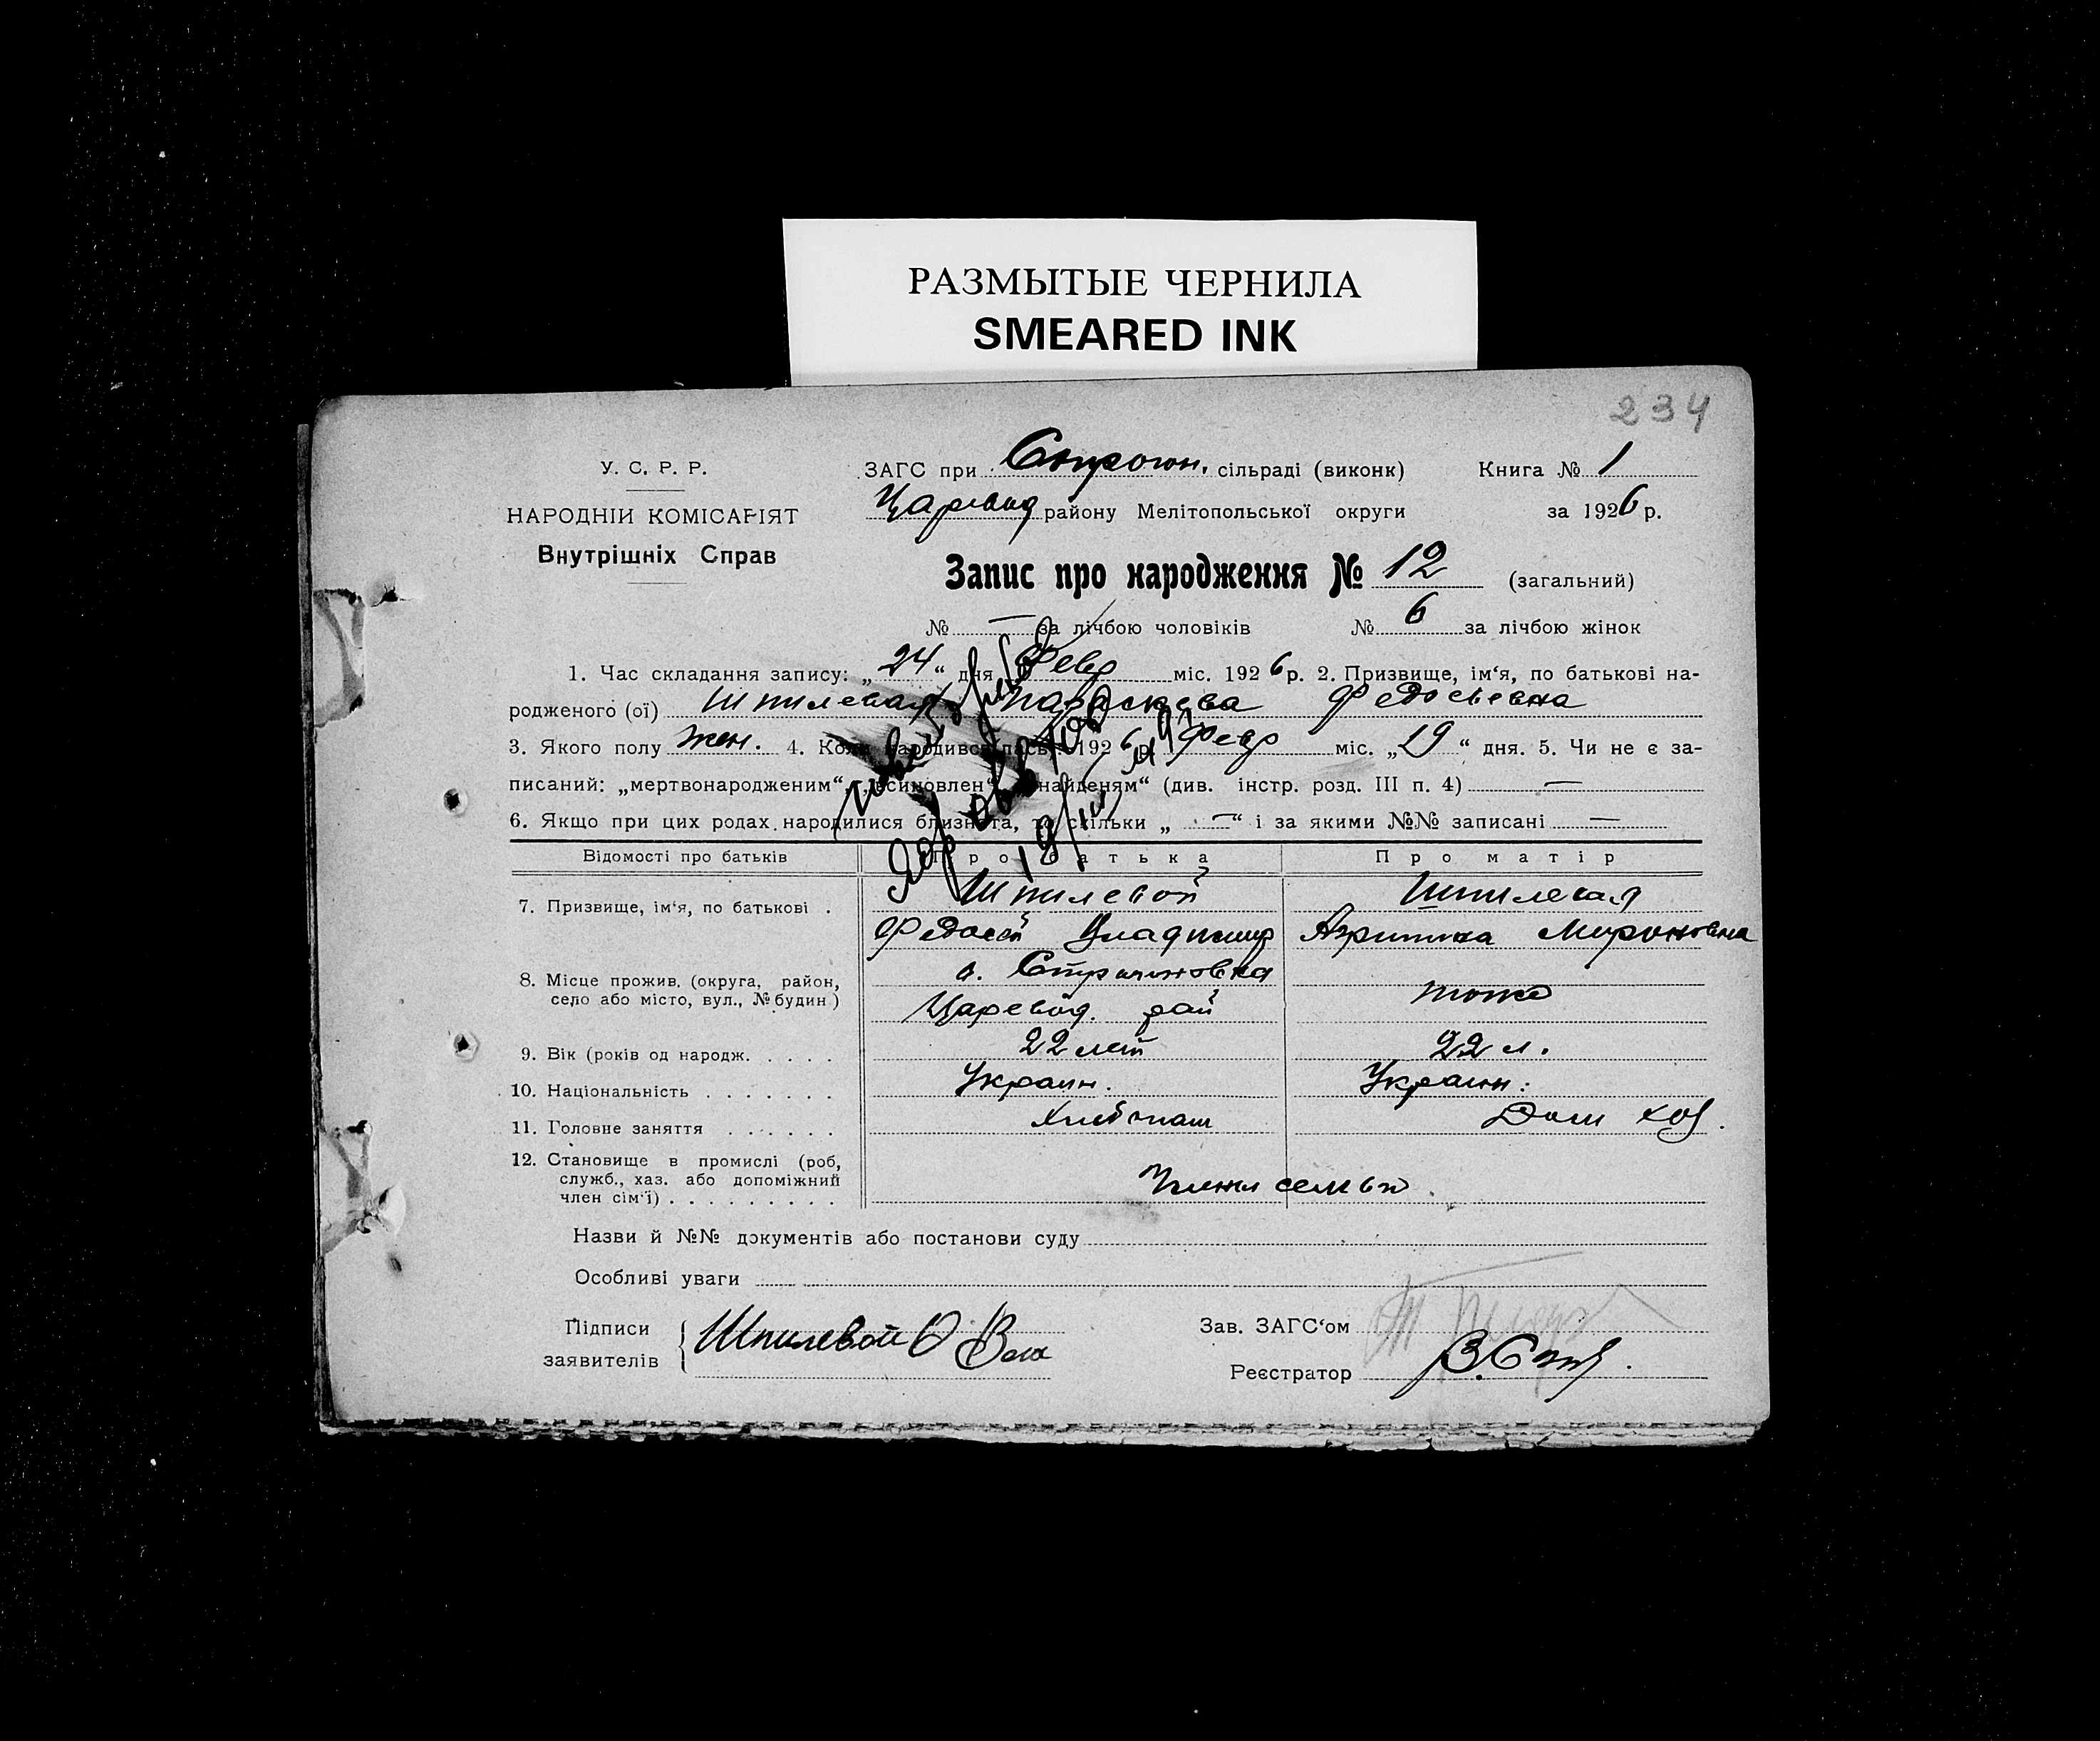 РАЗМЫТЫЕ ЧЕРНИЛА
SMEARED INK
234
У. С. Р. Р.
НАРОДНІЙ КОМІСАРІЯТ
Внутрішніх Справ
ЗАГС при сільраді (виконк) Книга № 1
Царевод району Мелітопольської округи за 1926 р.
Запис про народження № 12 (загальний)
№ — за лічбою чоловіків № 6 за лічбою жінок
1. Час складання запису: „24“ дня Февр міс. 1926 р. 2. Призвище, ім‘я, по батькові на-
родженого (ої) Шпилевая Параскева Федосьевна
3. Якого полу жен. 4. Коли народився лась 1926 р. Февр міс. „19“ дня. 5. Чи не є за-
писаний: „мертвонародженим“, „всиновлен“ найденям“ (див. інстр. розд. III п. 4) —
6. Якщо при цих родах народилися близнята, то скільки „—“ і за якими №№ записані —
19/III
Відомості про батьків Про батька Про матір
7. Призвище, ім‘я, по батькові . Шпилевой Шпилевая
Федосей Владимир Мироновна
8. Місце прожив. (округа, район,
село або місто, вул., № будин) Царевод. рай тоже
9. Вік (років од народж. . . . . 22 лет 22 л.
10. Національність . . . . . . . Украин. Украин.
11. Головне заняття . . . . . . Хлебопаш Дом хоз.
12. Становище в промислі (роб,
служб., хаз. або допоміжний
член сім‘ї) . . . . . . . . . Члены семьи
Назви й №№ документів або постанови суду
Особливі уваги
Підписи
заявителів Шпилевой Ф
Зав. ЗАГС‘ом
Реєстратор